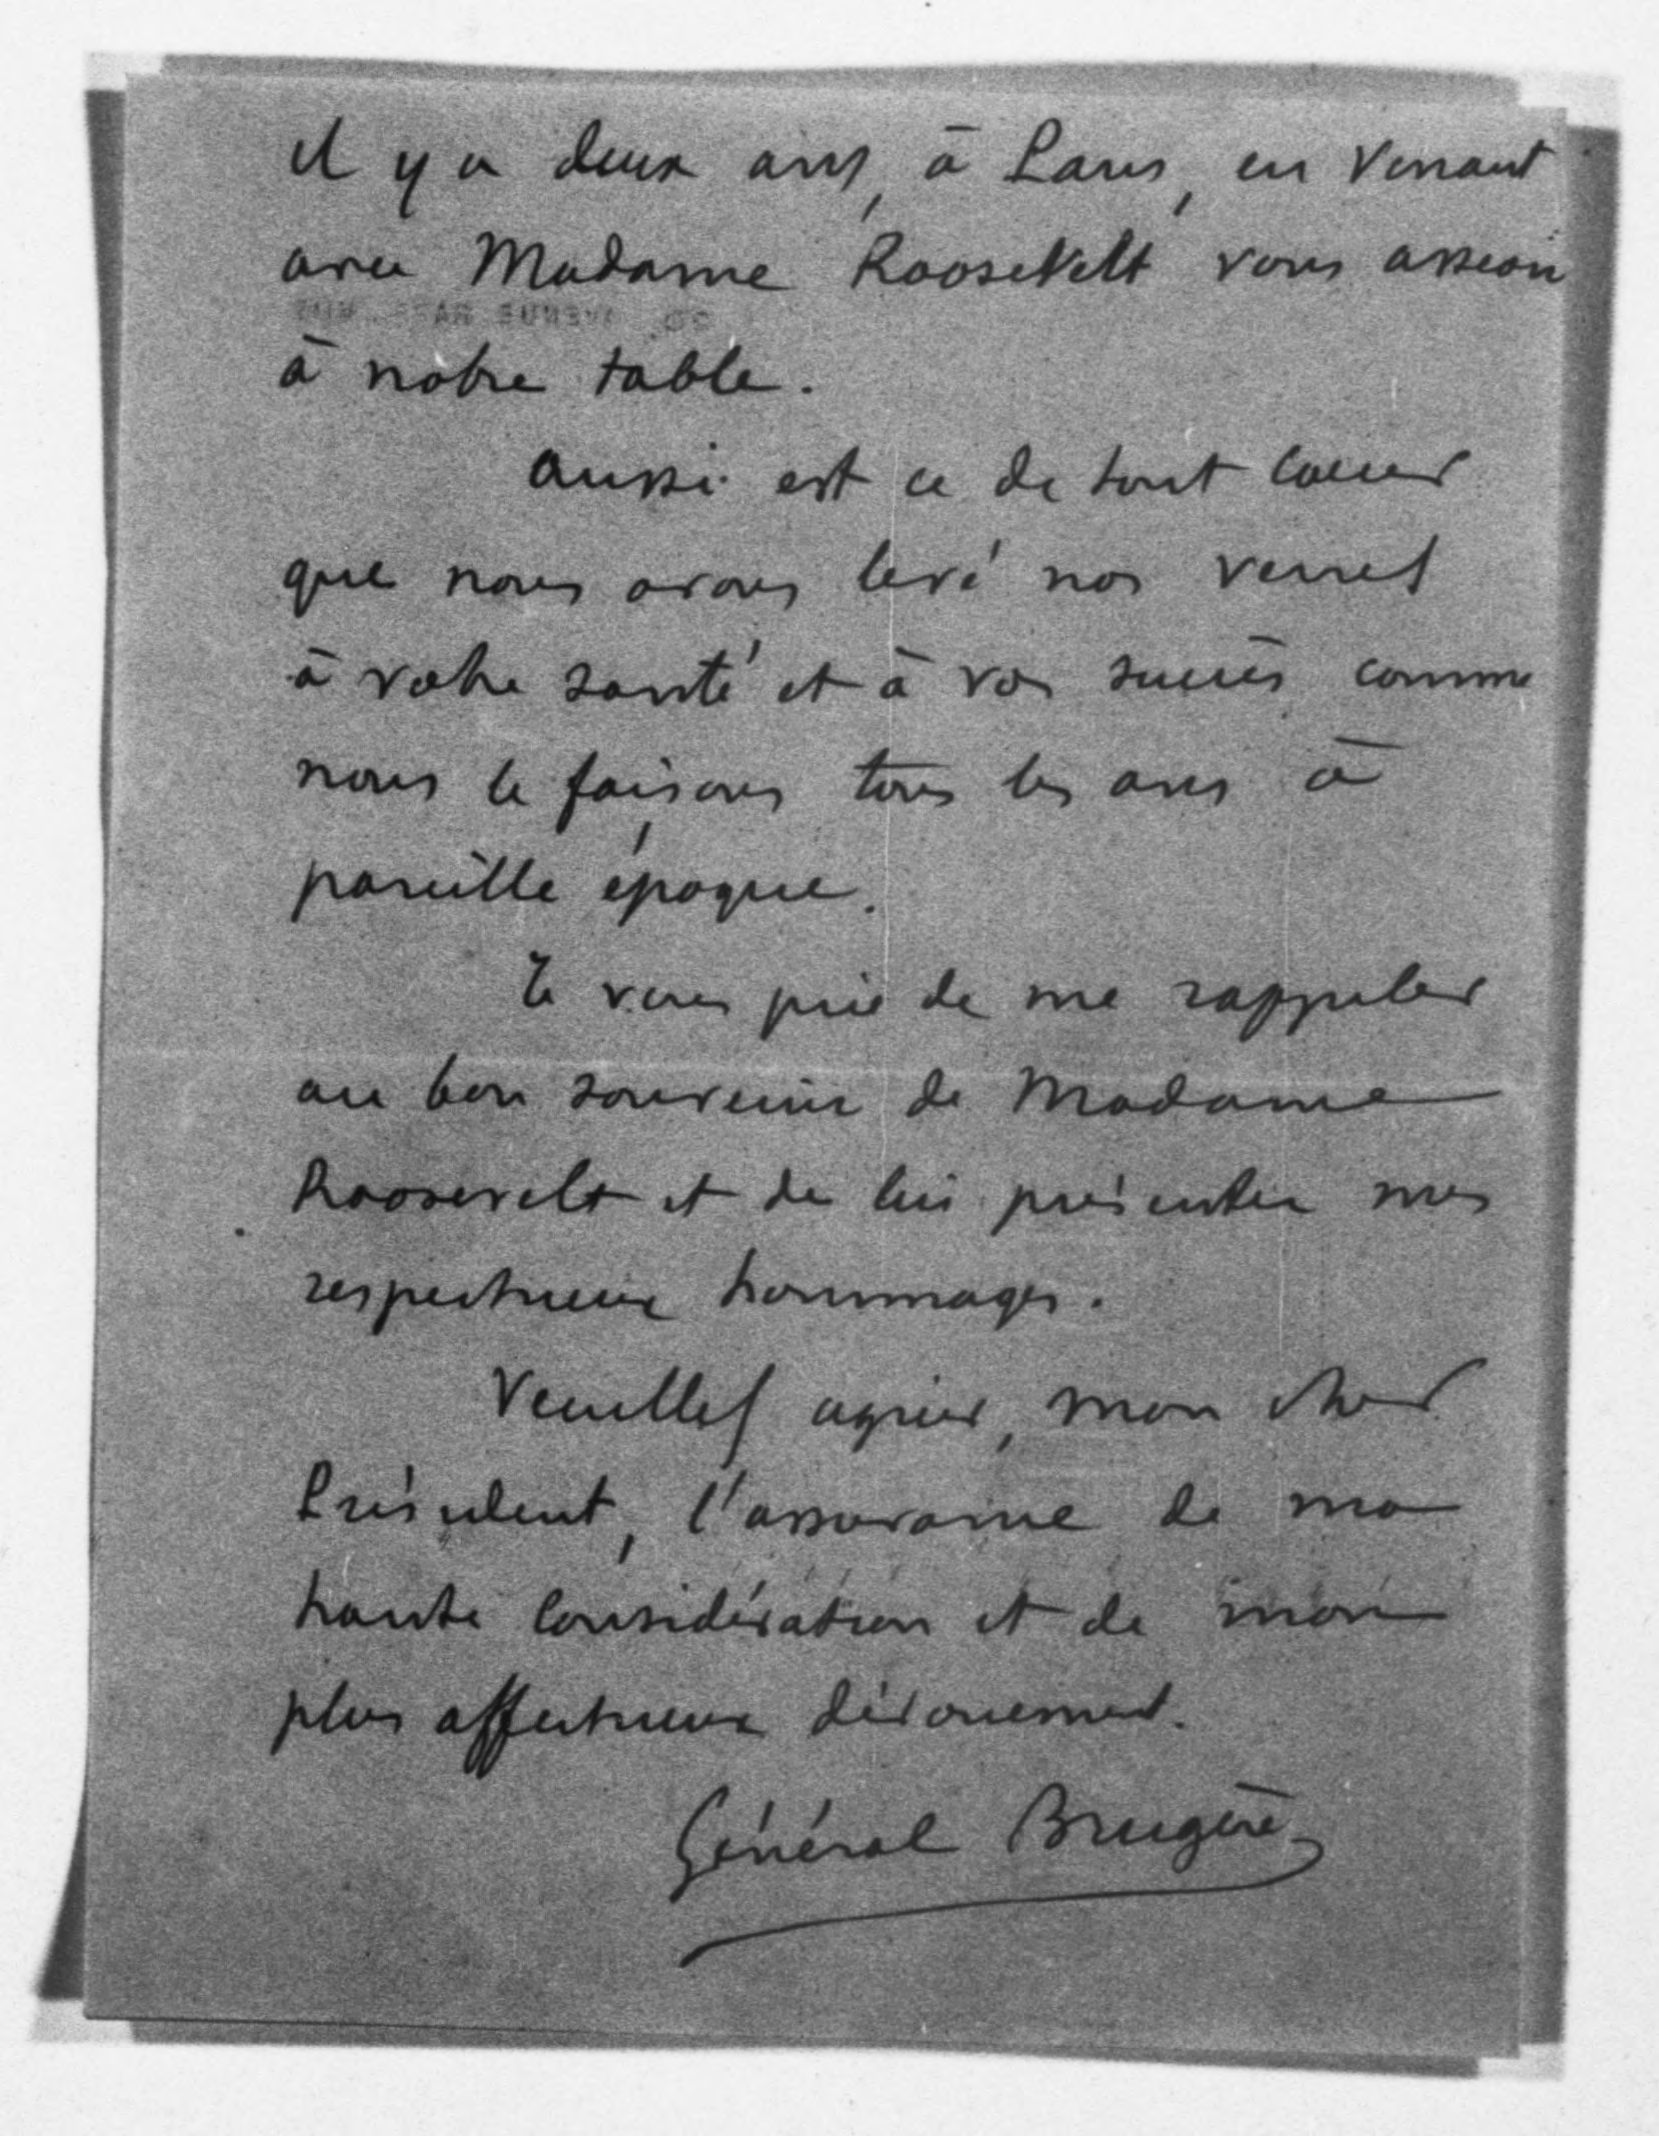 il y a deux ans, à Paris, en venant
avec Madame Roosevelt vous asseoir
à notre table.
Aussi est ce de tout coeur
que nous avons levé nos verres
à votre santé et à vos succès comme
nous le faisons tous les ans à
pareille époque.
Je vous prie de me rappeler
au bon souvenir de Madame
Roosevelt et de lui présenter mes
respectueux hommages.
Veuillez agréer, mon cher
Président, l'assurance de ma
haute considération et de mon
plus affectueux dévouement.
Général Brugère